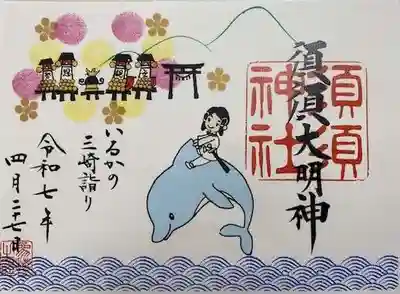 須須大明神
須須
神社
いるかの
三崎詣り
令和七年
四月二十七日